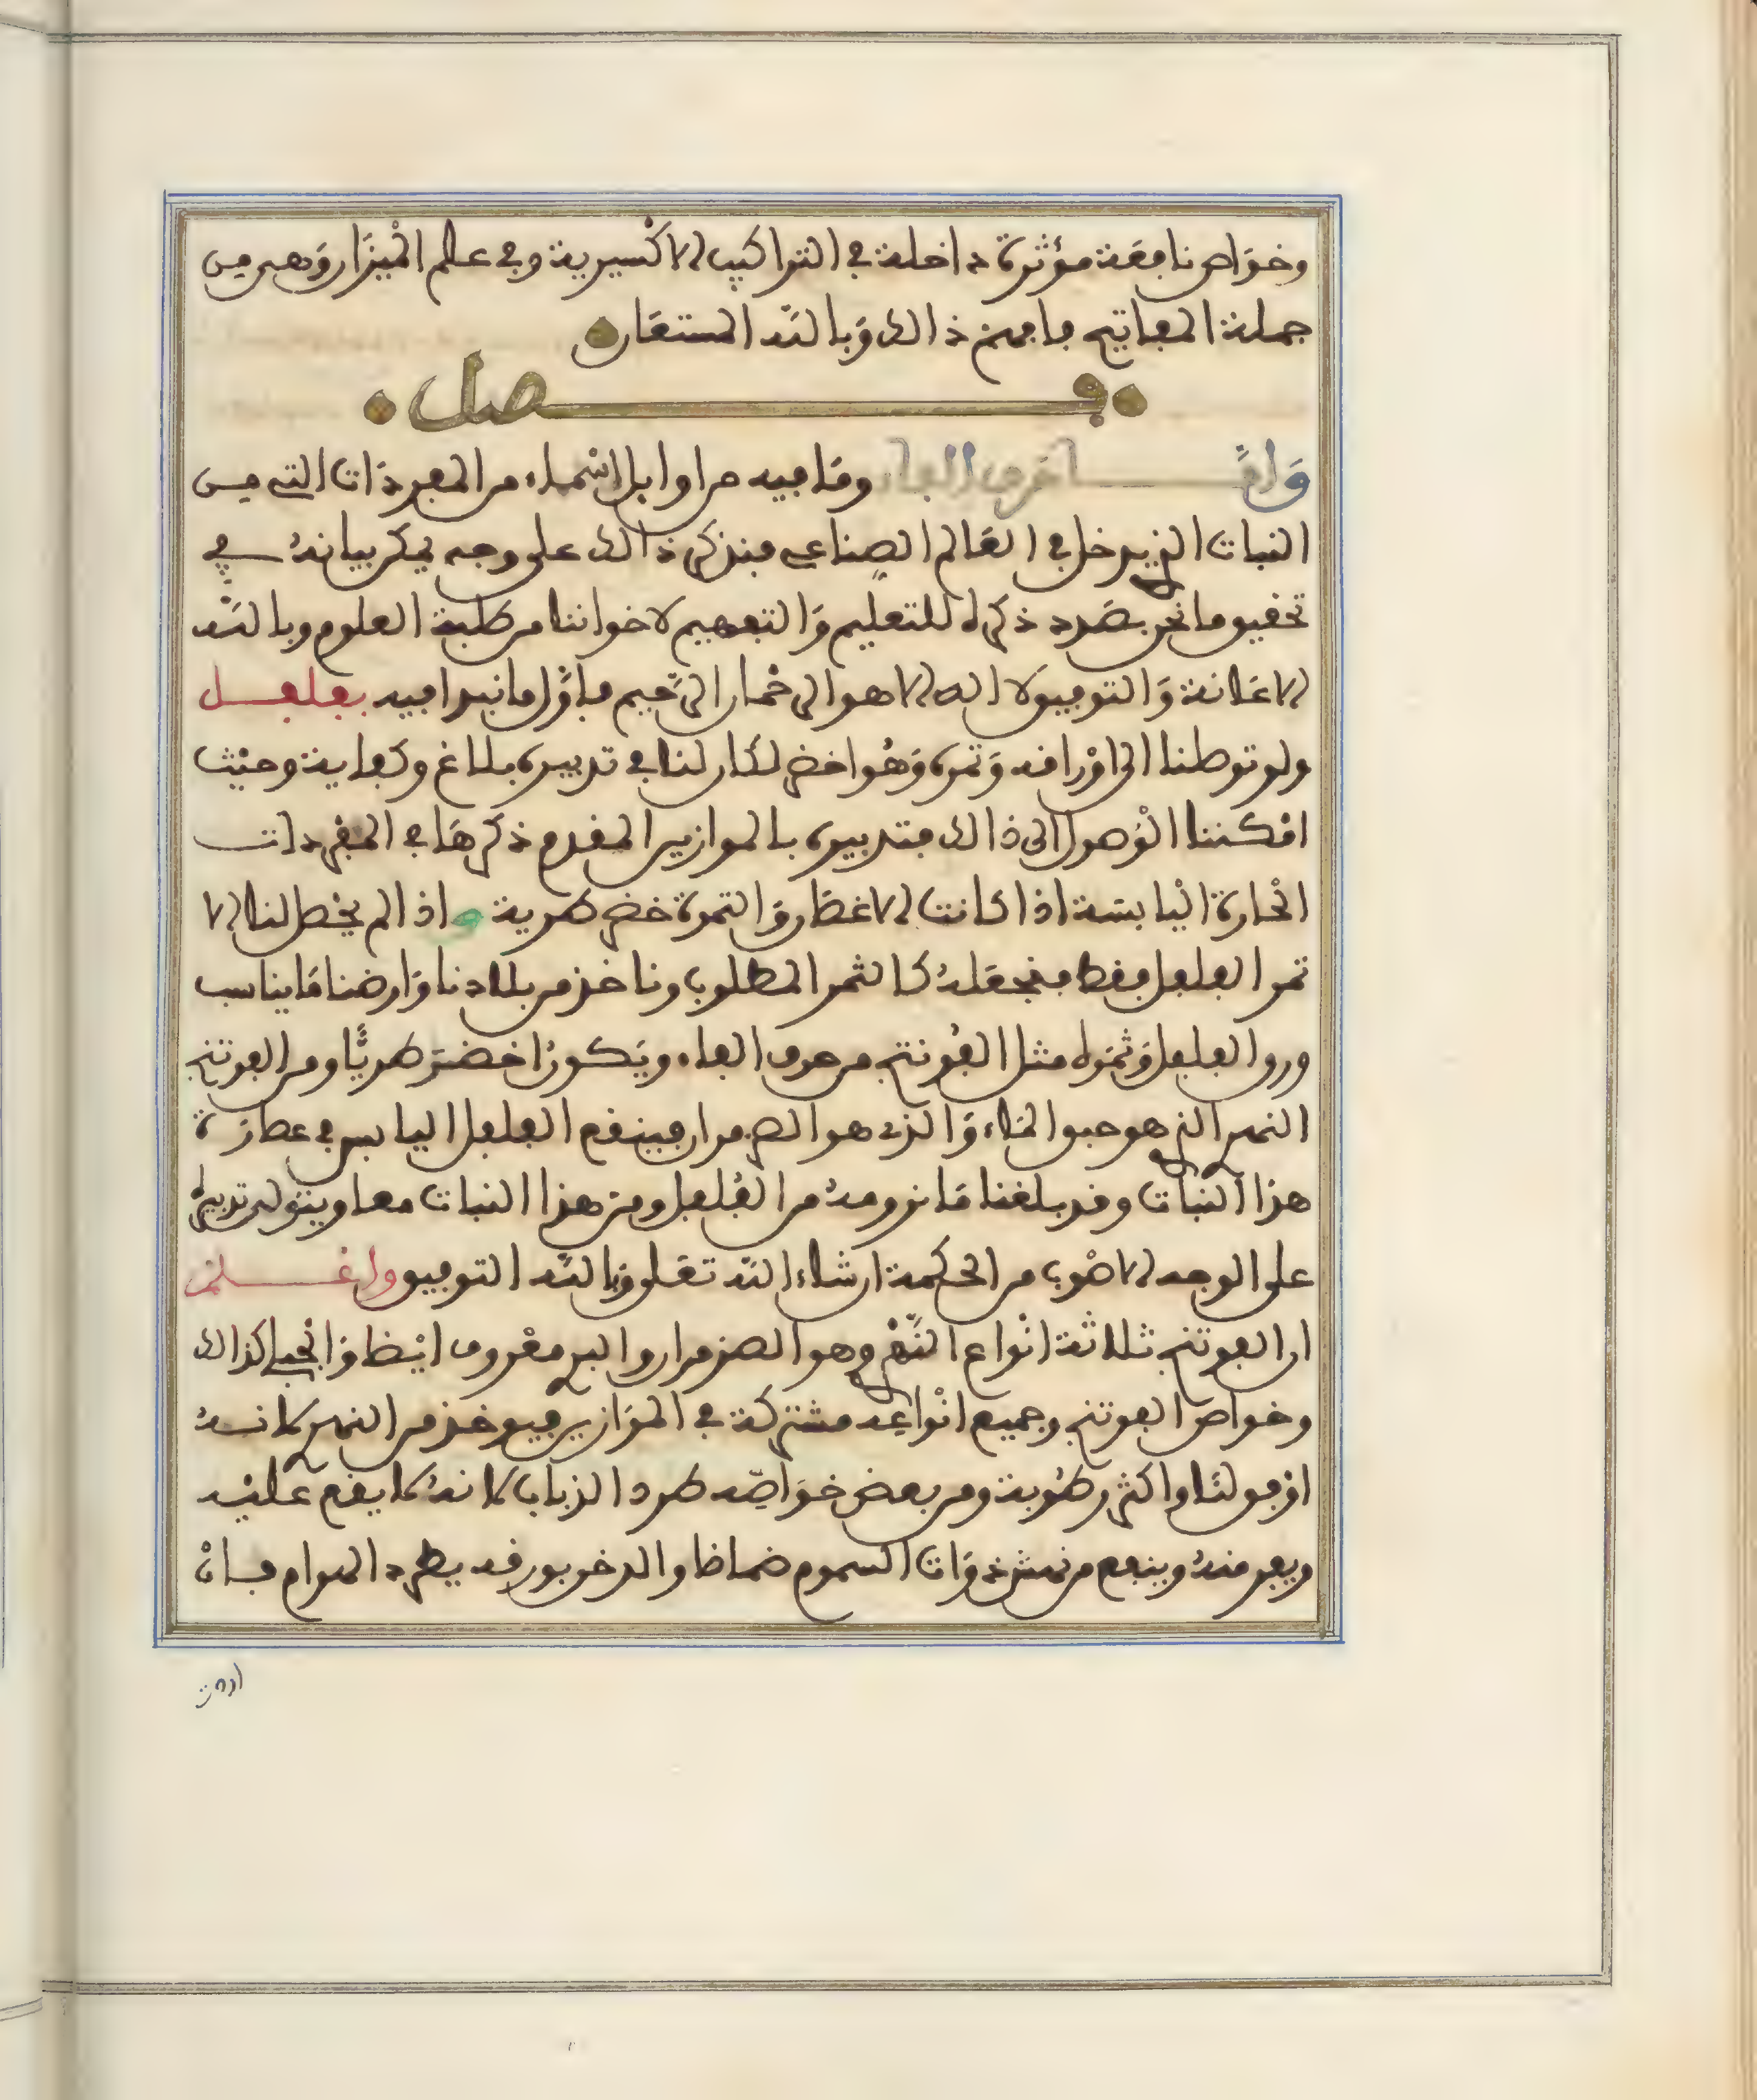 وخواص نافعة مؤثرة داخلة في التراكيب الاكسيرية وفي علم الميزان وهي من
جملة المفاتيح فافهم ذالك وبالله المستعان
فصل
واما حرف الفاء وما فيه من اوايل اسماء من المفردات التي من
النبات الذي يدخل في العالم الصناعي فنذكر ذالك على وجه يمكن بيانه في
تحقيق ما نحن بصدد ذكره للتعليم والتفهيم لاخواننا من طلبة العلوم وبالله
الاعانة والتوفيق لا اله الا هو الرحمان الرحيم فاول ما نبدا فيه بفلفل
ولو توصلنا الى اوراقه وثمره وهو اخضر لكان لنا في تدبيره بلاغ وكفاية وحيث
امكننا الوصول الى ذالك فتدبيره بالموازين المقدم ذكرها في المفردات
الحارة اليابسة اذا كانت الاغصان والثمرة خضر طرية واذا لم يحصل لنا الا
ثمر الفلفل فقط فنجعله كالثمر المطلوب وناخذ من بلادنا وارضنا ما يناسب
ورق الفلفل وثمره مثل الفوتنج من حرف الفاء ويكون اخضر طريا ومن الفوتنج
النهري الذي هو حبق الماء والذي هو الضومران فينقع الفلفل اليابس في عصارة
هذا النبات وقد بلغنا ما نرومه من الفلفل ومن هذا النبات معا وينتولى تدبيره
على الوجه الاصوب من الحكمة ان شاء الله تعلى وبالله التوفيق واعلم
ان الفوتنج ثلاثة انواع النهري وهو الضومران والبري معروف ايضا والجبلي كذالك
وخواص الفوتنج وجميع انواعه مشتركة في الموازين فيوخذ من النهري لانه
اوفق لنا واكثر رطوبة ومن بعض خواصه طرد الذباب لانه لا يقع عليه
ويفر منه وينفع من نهش ذوات السموم ضمادا والدخن بورقه يطرد الهوام فان